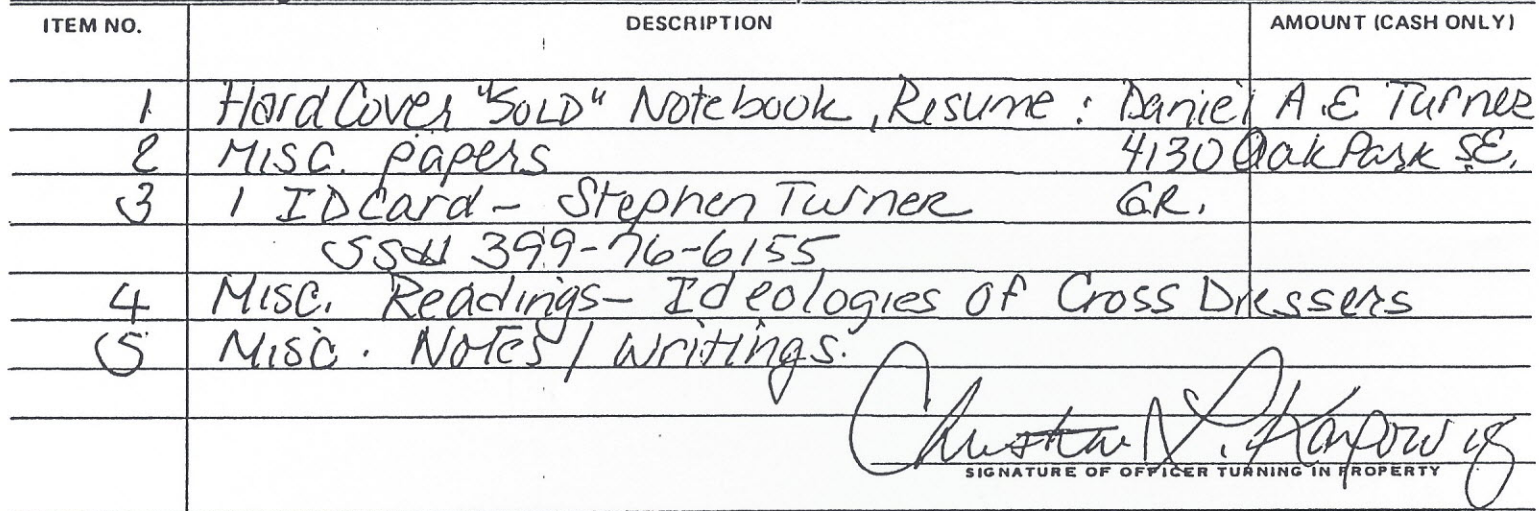 ITEM NO. DESCRIPTION AMOUNT (CASH ONLY)
1 Hard Cover "SOLD" Notebook, Resume: Daniel A.E Turner
2 Misc. papers 4130 Oak Park SE.
3 1 ID Card - Stephen Turner GR.
SS# 399-76-6155
4 Misc. Readings - Ideologies of Cross Dressers
5 Misc. Notes / Writings.
SIGNATURE OF OFFICER TURNING IN PROPERTY